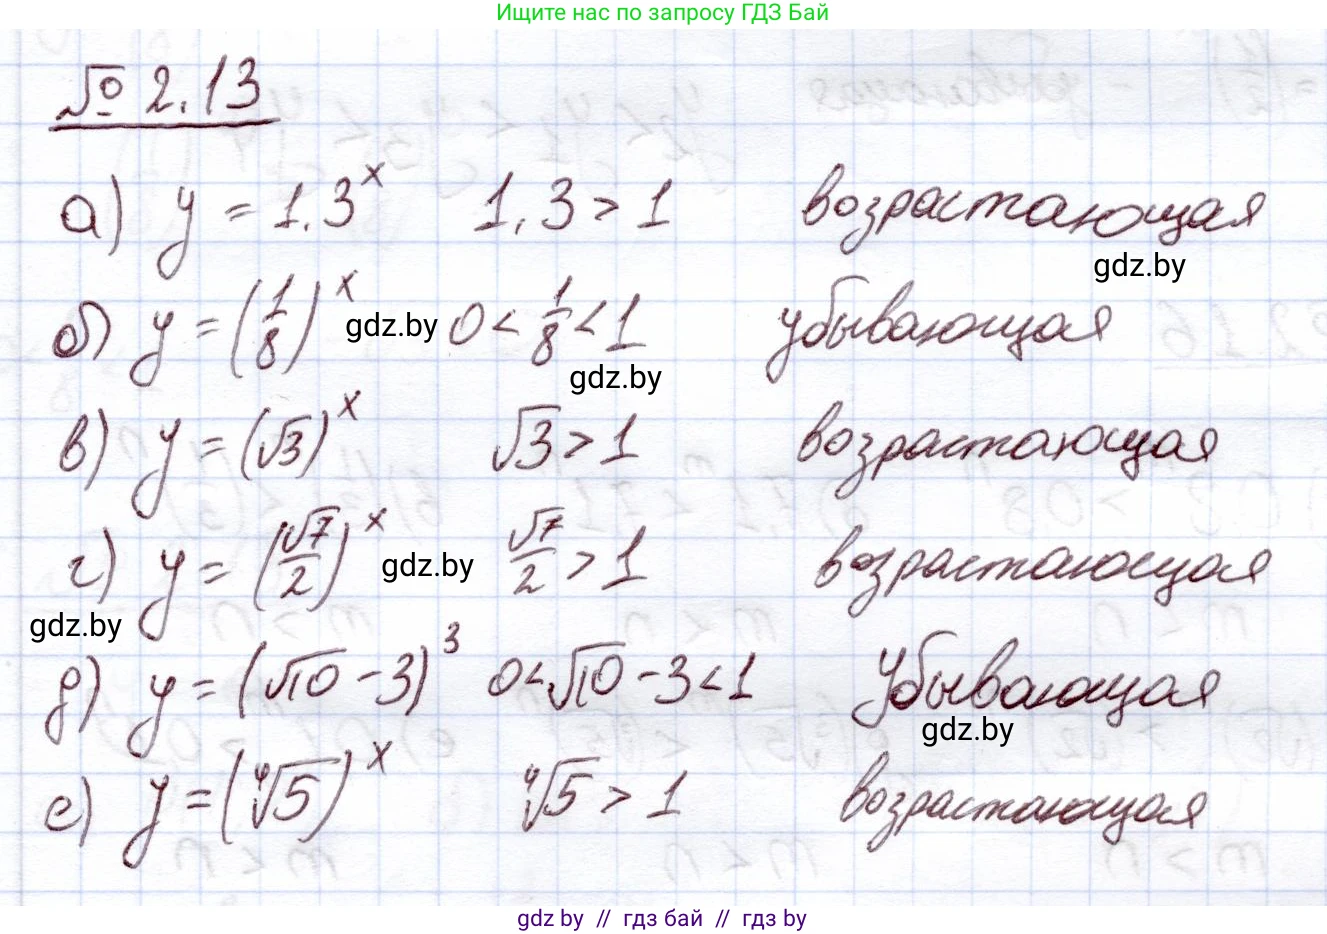 Ищите нас по запросу ГДЗ Бай
№ 2.13
а) y = 1,3^x 1,3 > 1 возрастающая
gdz.by
б) y = (1/8)^x gdz.by 0 < 1/8 < 1 убывающая
gdz.by
в) y = (√3)^x √3 > 1 возрастающая
г) y = (√7/2)^x gdz.by √7/2 > 1 возрастающая
gdz.by
д) y = (√10 - 3)^3 0 < √10 - 3 < 1 убывающая
gdz.by
е) y = (⁴√5)^x ⁴√5 > 1 возрастающая
gdz by // гдз бай // гдз by